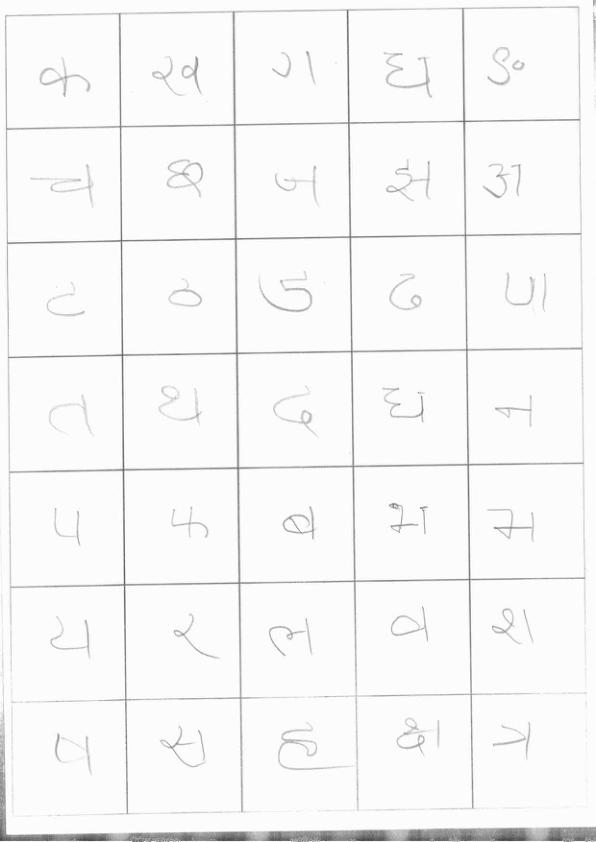 क ख ग घ ङ
च छ ज झ अ
ट ठ ड ढ ण
त थ द घ न
प फ ब भ म
य र ल व श
ष स ह क्ष त्र